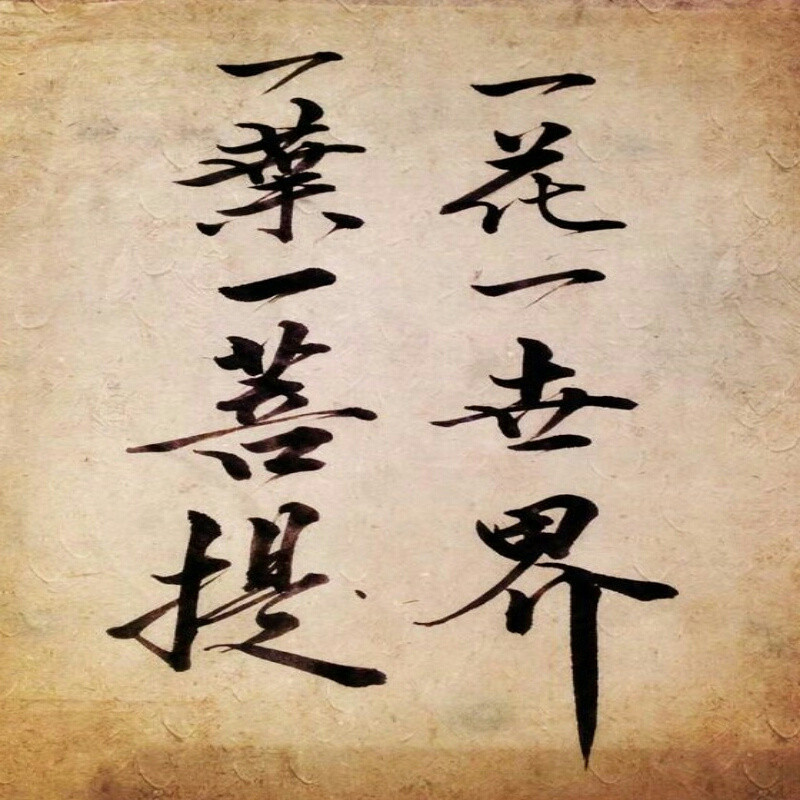 一花一世界
一葉一菩提